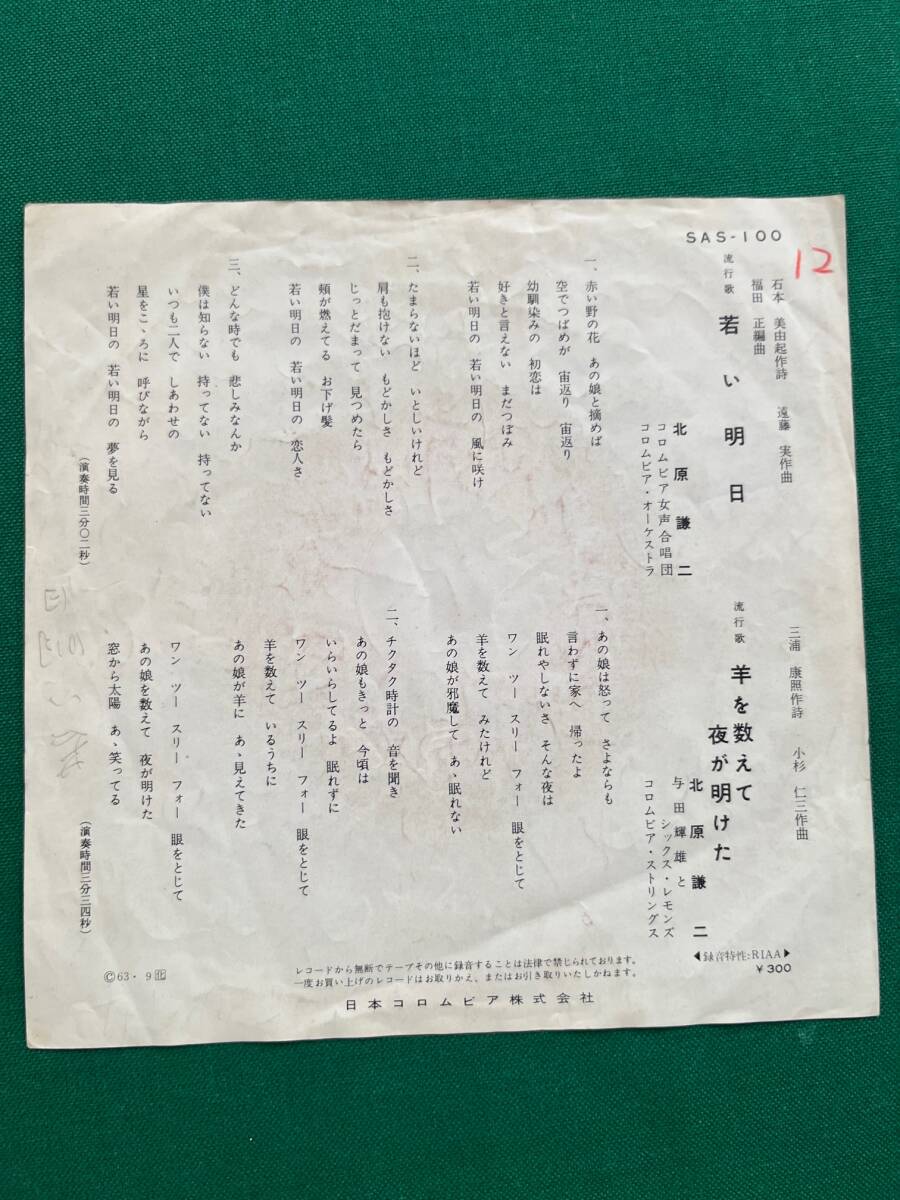 SAS-100
12
石本 美由起作詩 遠藤 実作曲
福田 正編曲
流行歌 若い明日
北原謙二
コロムビア女声合唱団
コロムビア・オーケストラ
一、赤い野の花 あの娘と摘めば
空でつばめが 宙返り 宙返り
幼馴染みの 初恋は
好きと言えない まだつぼみ
若い明日の 若い明日の 風に咲け
二、たまらないほど いとしいけれど
肩も抱けない もどかしさ もどかしさ
じっとだまって 見つめたら
頬が燃えてる お下げ髪
若い明日の 若い明日の 恋人さ
三、どんな時でも 悲しみなんか
僕は知らない 持ってない 持ってない
いつも二人で しあわせの
星をこゝろに 呼びながら
若い明日の 若い明日の 夢を見る
(演奏時間三分〇二秒)
三浦 康照作詩 小杉 仁三作曲
流行歌 羊を数えて
夜が明けた
北原謙二
与田輝雄と
シックス・レモンズ
コロムビア・ストリングス
一、あの娘は怒って さよならも
言わずに家へ 帰ったよ
眠れやしないさ そんな夜は
ワン ツー スリー フォー 眼をとじて
羊を数えて みたけれど
あの娘が邪魔して あゝ眠れない
二、チクタク時計の 音を聞き
あの娘もきっと 今頃は
いらいらしてるよ 眠れずに
ワン ツー スリー フォー 眼をとじて
羊を数えて いるうちに
あの娘が羊に あゝ見えてきた
ワン ツー スリー フォー 眼をとじて
あの娘を数えて 夜が明けた
窓から太陽 あゝ笑ってる
(演奏時間二分三四秒)
◀録音特性:RIAA▶
¥300
レコードから無断でテープその他に録音することは法律で禁じられております。
一度お買い上げのレコードはお取りかえ、またはお引き取りいたしかねます。
日本コロムビア株式会社
©63・9